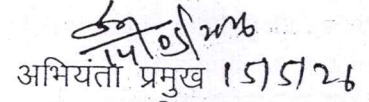 14/05/2026
अभियंता प्रमुख 15/5/26